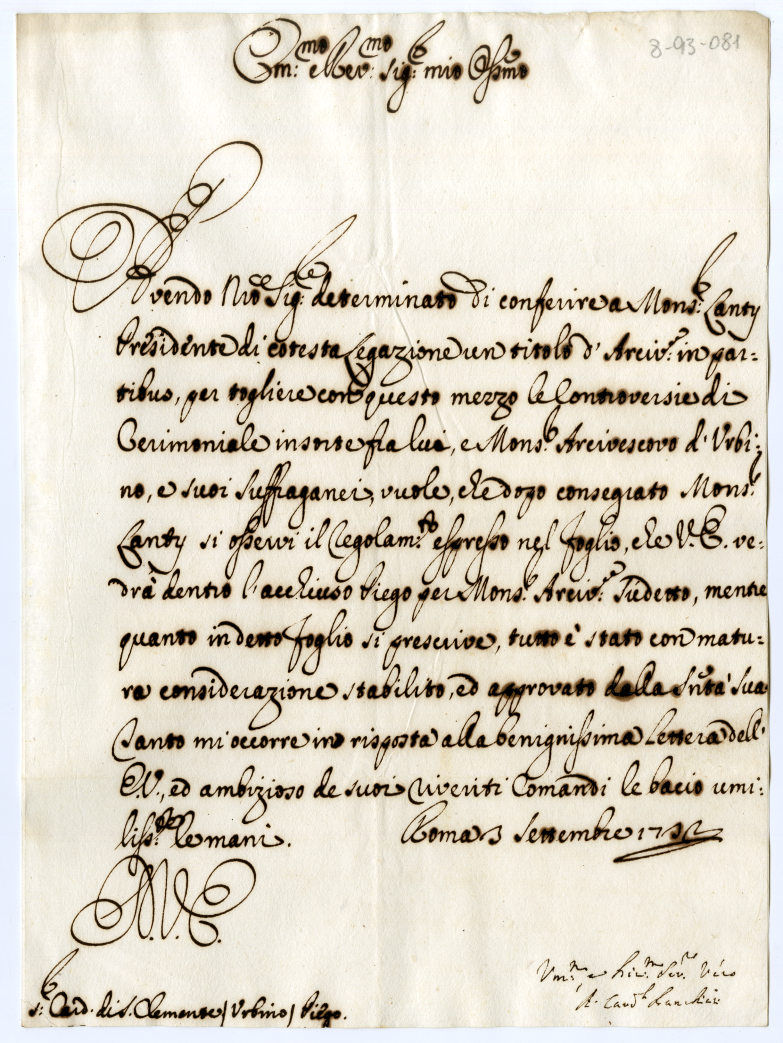 8-93-081
Em.mo e Rev.mo Sig.r mio Oss.mo
Avendo N̄ro Sig.re determinato di conferire a Mons.r Lanty
Presidente di cotesta Legazione un titolo d' Arciv.o in par=
tibus, per togliere con questo mezzo le Controversie di
Cerimoniale insorte fra lui, e Mons.r Arcivescovo d' Urbi=
no, e suoi Suffraganei, vuole, che dopo consegrato Mons.r
Lanty si osservi il Regolam.to espresso nel foglio, che V.E. ve=
drà dentro l'acchiuso Piego per Mons.r Arciv.o Sudetto, mentre
quanto in detto foglio si prescrive, tutto è stato con matu=
ra considerazione stabilito, ed approvato dalla S̄ntà Sua
Tanto mi occorre in risposta alla benignissima Lettera dell'
E.V., ed ambizioso de suoi riveriti Comandi le bacio umi=
liss.te le mani. Roma 3 Settembre 1732
D.V.E.
S.r Card. di S. Clemente / Urbino / Piego.
Um.o e Div.mo Ser.re Vero